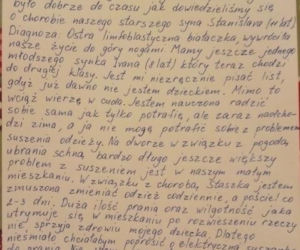 było dobrze do czasu jak dowiedzieliśmy się
o chorobie naszego starszego syna Stanisława (11 lat)
Diagnoza: Ostra limfoblastyczna białaczka, wywróciła
nasze życie do góry nogami. Mamy jeszcze jednego
młodszego synka Ivana (8 lat) który teraz chodzi
do drugiej klasy. Jest mi niezręcznie pisać list,
gdyż już dawno nie jestem dzieckiem. Mimo to
wciąż wierzę w cuda. Jestem nauczona radzić
sobie sama jak tylko potrafię, ale zaraz nadcho-
dzi zima, a ja nie mogę potrafić sobie z problemem
suszenia odzieży. Na dworze w związku z pogodą,
ubrania schną bardzo długo jeszcze większy
problem z suszeniem jest w naszym małym
mieszkaniu. W związku z chorobą, Staszka jestem
zmuszona zmieniać odzież codziennie, a pościel co
2-3 dni. Duża ilość prania oraz wilgotność jaka
utrzymuje się w mieszkaniu po rozwieszeniu rzeczy
nie sprzyja zdrowiu mojego dziecka. Dlatego
nieśmiało chciałabym poprosić o elektryczną